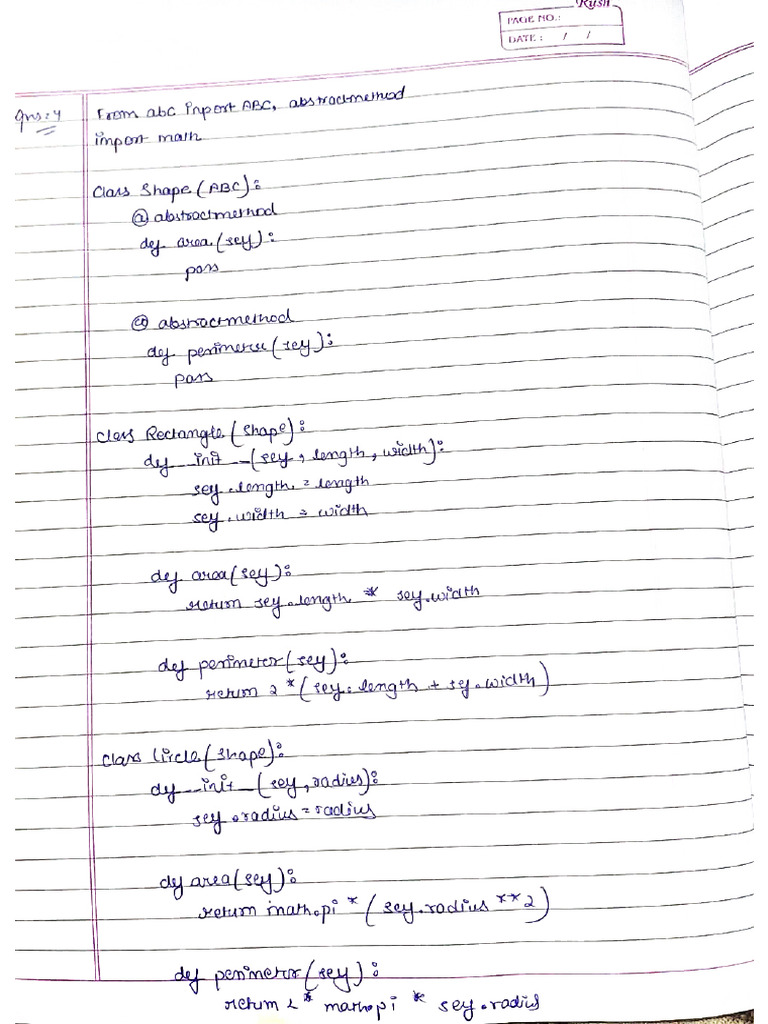 Rush
PAGE NO.:
DATE: / /
Ans:4
From abc import ABC, abstractmethod
import math
Class Shape (ABC):
@ abstractmethod
def area (self):
pass
@ abstractmethod
def perimeter (self):
pass
class Rectangle (Shape):
def __init__ (self, length, width):
self.length = length
self.width = width
def area (self):
return self.length * self.width
def perimeter (self):
return 2 * (self.length + self.width)
class Circle (Shape):
def __init__ (self, radius):
self.radius = radius
def area (self):
return math.pi * (self.radius ** 2)
def perimeter (self):
return 2 * math.pi * self.radius